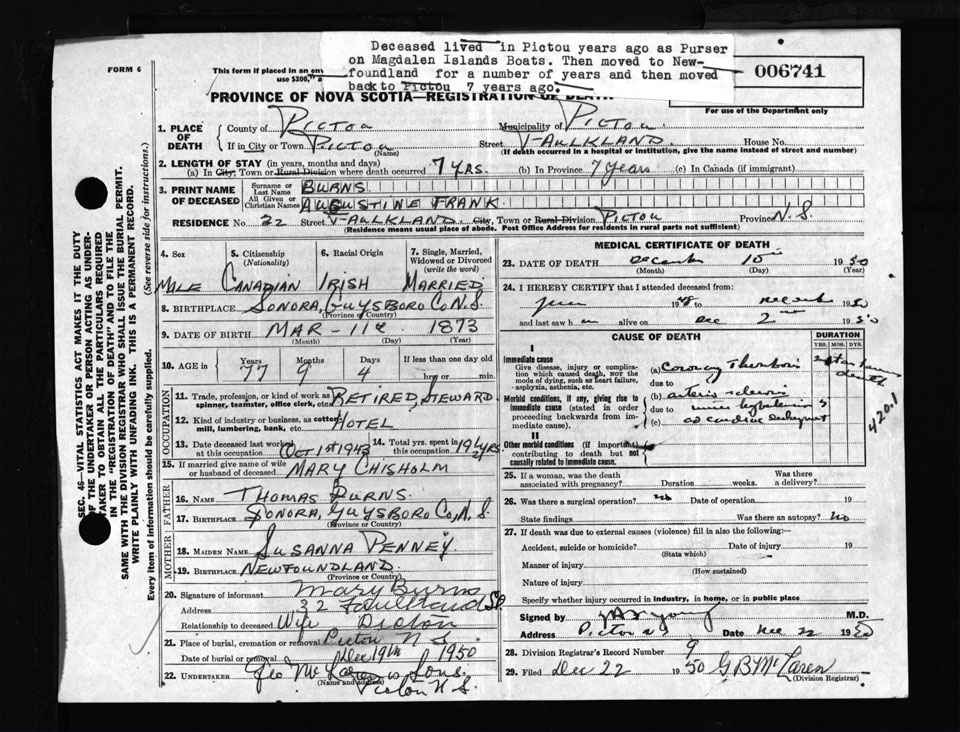 Deceased lived in Pictou years ago as Purser
on Magdalen Islands Boats. Then moved to New-
foundland for a number of years and then moved
back to Pictou 7 years ago.
FORM 6
This form if placed in an en
use $300,
006741
For use of the Department only
PROVINCE OF NOVA SCOTIA—REGISTRATION OF DEATH
1. PLACE OF DEATH
County of Pictou Municipality of Pictou
If in City or Town Pictou (Name) Street Faulkland. House No.
(If death occurred in a hospital or institution, give the name instead of street and number)
2. LENGTH OF STAY (in years, months and days)
(a) In City, Town or Rural Division where death occurred 7 yrs. (b) In Province 7 years (c) In Canada (if immigrant)
3. PRINT NAME OF DECEASED
Surname or Last Name BURNS
All Given or Christian Names AUGUSTINE FRANK
RESIDENCE No. 22 Street Faulkland City, Town or Rural Division Pictou Province N.S.
(Residence means usual place of abode. Post Office Address for residents in rural parts not sufficient)
4. Sex Male
5. Citizenship (Nationality) Canadian
6. Racial Origin Irish
7. Single, Married, Widowed or Divorced (write the word) Married
8. BIRTHPLACE Sonora, Guysboro Co. N.S.
(Province or Country)
9. DATE OF BIRTH Mar - 11th 1873
(Month) (Day) (Year)
10. AGE in Years 77 Months 9 Days 4 If less than one day old hrs. or min.
OCCUPATION
11. Trade, profession, or kind of work as spinner, teamster, office clerk, etc. Retired, Steward
12. Kind of industry or business, as cotton mill, lumbering, bank, etc. Hotel
13. Date deceased last worked at this occupation Oct 1st 1943 14. Total yrs. spent in this occupation 19½ yrs.
15. If married give name of wife or husband of deceased Mary Chisholm
FATHER
16. NAME Thomas Burns.
17. BIRTHPLACE Sonora, Guysboro Co, N.S.
(Province or Country)
MOTHER
18. MAIDEN NAME Susanna Penney.
19. BIRTHPLACE Newfoundland.
(Province or Country)
20. Signature of informant Mary Burns
Address 32 Faulkland St
Relationship to deceased Wife Pictou
21. Place of burial, cremation or removal Pictou N S.
Date of burial or removal Dec 19th 1950
22. UNDERTAKER Geo McLaren & Sons.
(Name and Address) Pictou N.S.
MEDICAL CERTIFICATE OF DEATH
23. DATE OF DEATH December 15 1950
(Month) (Day) (Year)
24. I HEREBY CERTIFY that I attended deceased from:
1948 to 1950
and last saw h alive on Dec 2 1950
CAUSE OF DEATH
DURATION
YRS. MOS. DYS.
I
Immediate cause
Give disease, injury or complication which caused death, NOT the mode of dying, such as heart failure, asphyxia, asthenia, etc.
(a) Coronary Thrombosis
due to
Morbid conditions, if any, giving rise to immediate cause (stated in order proceeding backwards from immediate cause).
(b)
due to
(c)
420.1
II
Other morbid conditions (if important) contributing to death but not causally related to immediate cause.
25. If a woman, was the death associated with pregnancy? Duration weeks. Was there a delivery?
26. Was there a surgical operation? no Date of operation 19
State findings Was there an autopsy? no
27. If death was due to external causes (violence) fill in also the following:
Accident, suicide or homicide? Date of injury 19
(State which)
Manner of injury
(How sustained)
Nature of injury
Specify whether injury occurred in industry, in home, or in public place
Signed by M.D.
Address Pictou N.S. Date Dec 22 1950
28. Division Registrar's Record Number 9
29. Filed Dec 22 1950 G B McLaren
(Division Registrar)
SEC. 46—VITAL STATISTICS ACT MAKES IT THE DUTY
OF THE UNDERTAKER OR PERSON ACTING AS UNDER-
TAKER TO OBTAIN ALL THE PARTICULARS REQUIRED
IN THE "REGISTRATION OF DEATH" AND TO FILE THE
SAME WITH THE DIVISION REGISTRAR WHO SHALL ISSUE THE BURIAL PERMIT.
WRITE PLAINLY WITH UNFADING INK. THIS IS A PERMANENT RECORD.
Every item of information should be carefully supplied. (See reverse side for instructions.)